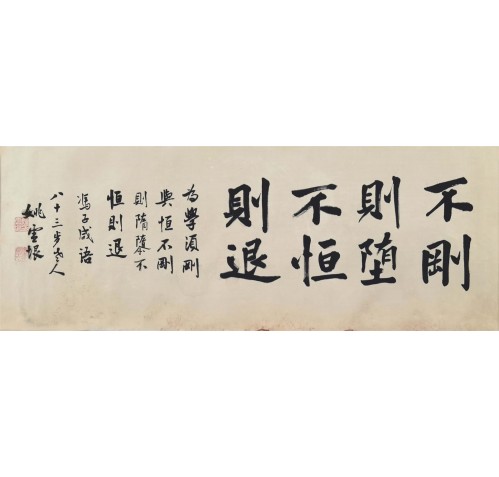 不剛
則堕
不恒
則退
為學須剛
與恒不剛
則隋隳不
恒則退
馮子成语
八十三岁老人
姚雪垠